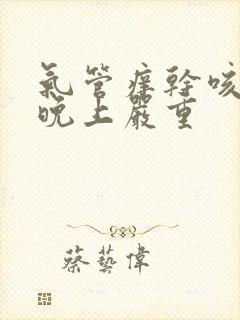 氣管痒幹咳
晚上嚴重
蔡藝偉